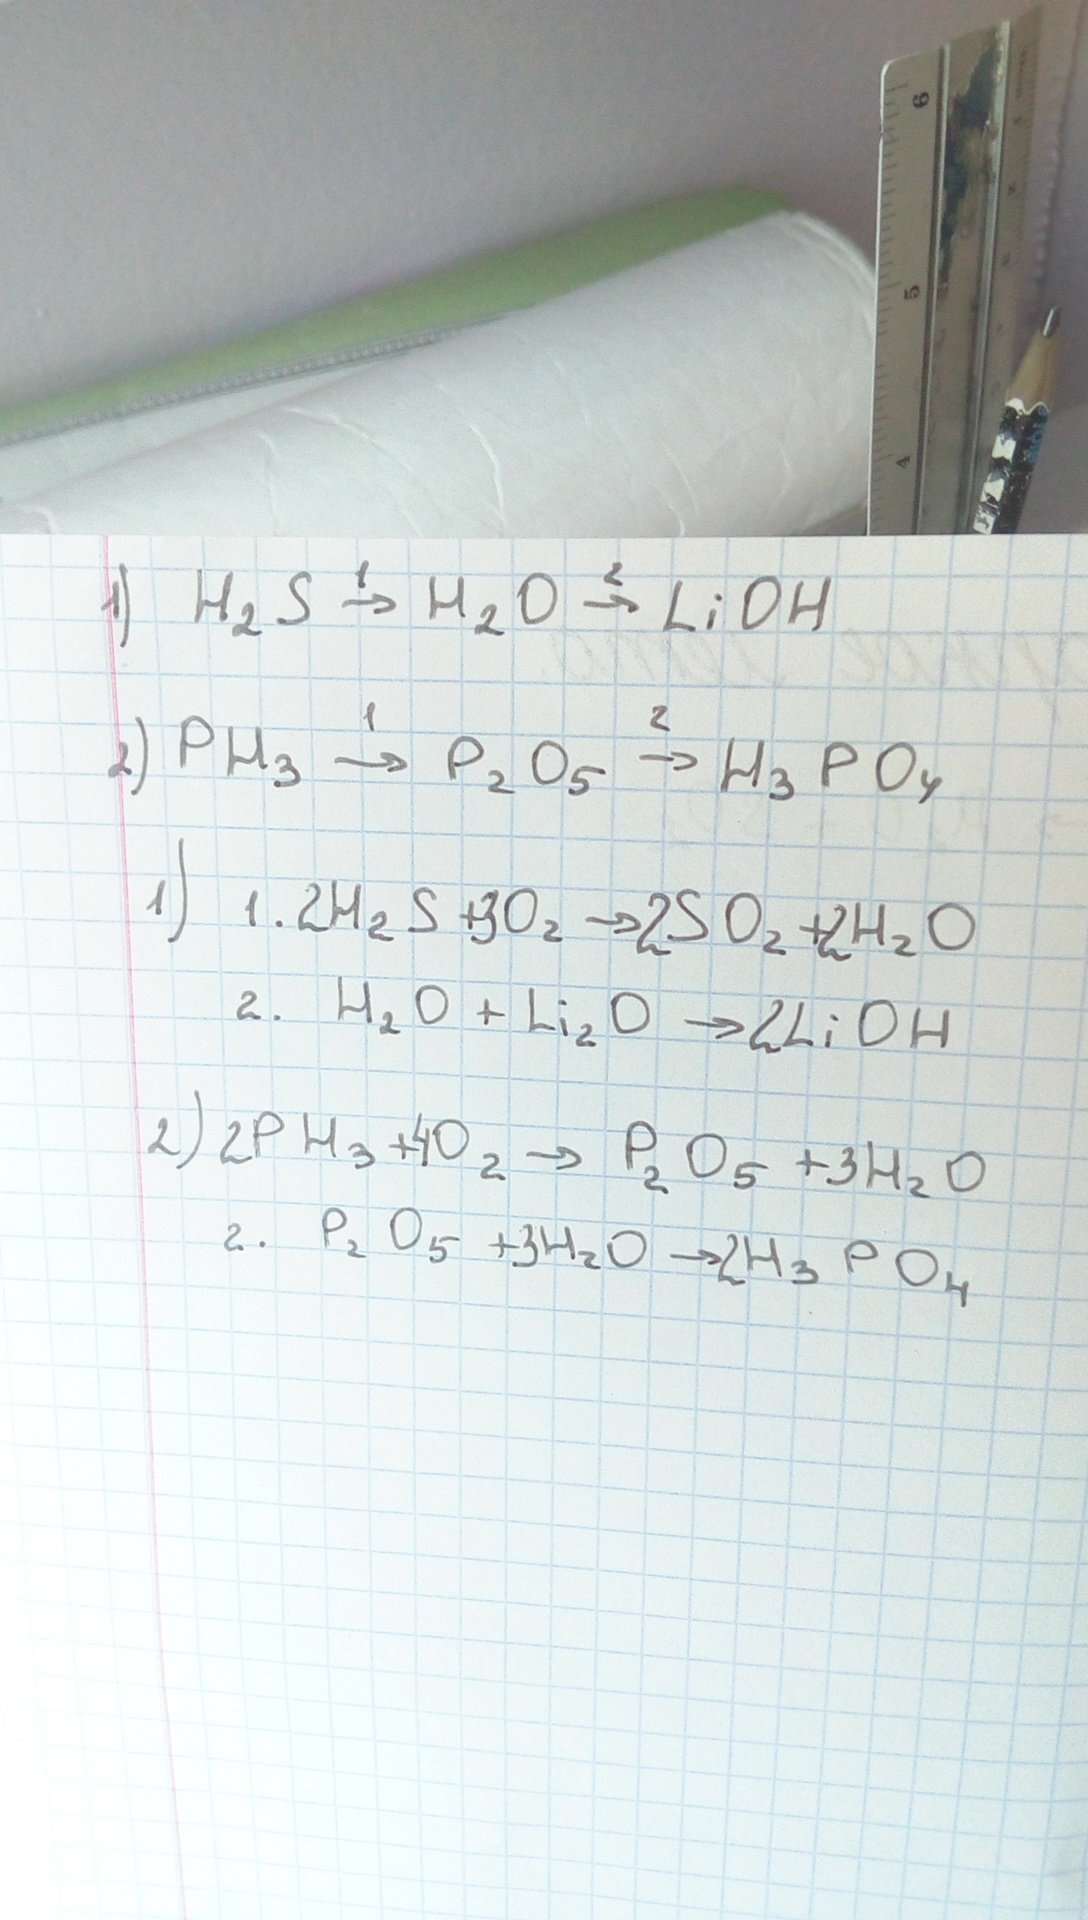 6
5
4
1) H₂S →¹ H₂O →² LiOH
2) PH₃ →¹ P₂O₅ →² H₃PO₄
1) 1. 2H₂S + 3O₂ → 2SO₂ + 2H₂O
2. H₂O + Li₂O → 2LiOH
2) 2PH₃ + 4O₂ → P₂O₅ + 3H₂O
2. P₂O₅ + 3H₂O → 2H₃PO₄